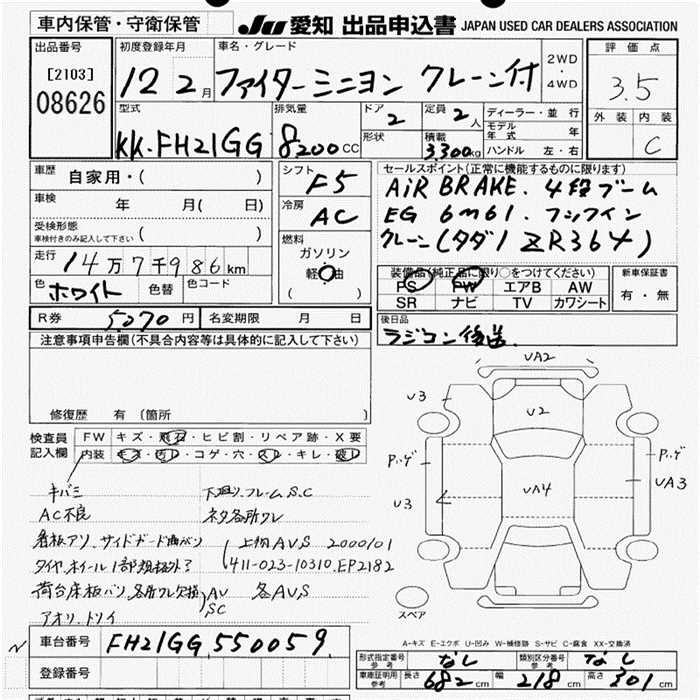 車内保管・守衛保管
JU 愛知 出品申込書 JAPAN USED CAR DEALERS ASSOCIATION
出品番号
[2103]
08626
初度登録年月
12 2月
車名・グレード
ファイターミニヨン クレーン付
2WD
・
4WD
評価点
3.5
外装 内装
C
型式
KK-FH21GG
排気量
8200CC
ドア
2
形状
定員
2人
積載
3,300kg
ディーラー・並行
モデル年式 年
ハンドル 左・右
車歴
自家用・( )
車検
年 月( 日)
受検形態
車検付きのみ記入して下さい ( )
走行
14万7千986km
色
ホワイト
色替
色コード
シフト
F5
冷房
AC
燃料
ガソリン
軽・油
( )
セールスポイント(正常に機能するものに限ります)
AiR BRAKE. 4段ブーム
EG 6M61. フックイン
クレーン(タダノ ZR364)
装備品(純正品に限り○をつけてください)
PS PW エアB AW
SR ナビ TV カワシート
新車保証書
有・無
R券 5270円
名変期限 月 日
後日品
ラジコン後送
注意事項申告欄(不具合内容等は具体的に記入して下さい)
修復歴 有(箇所 )
検査員記入欄
FW キズ・飛石・ヒビ割・リペア跡・X要
内装 キズ・汚レ・コゲ・穴・スレ・キレ・破レ
キバミ 下廻り.フレームS.C
AC不良 ネタ各所ワレ
看板アソ.サイドガード曲がり 上物AVS 2000/01
タイヤ.ホイール1部規格外ア 411-023-10310.EP2182
荷台床板バソ.各所ワレ欠損 AV SC 各AVS
アオリ.トソイ
VA2
V3
V2
P.ゲ
P.ゲ
VA4
VA3
V3
スペア
A-キズ E-エクボ U-凹み W-補修跡 S-サビ C-腐食 XX-交換済
車台番号 FH21GG 550059
登録番号
形式指定番号 参考 なし
類別区分番号 参考 なし
車庫証明用 参考 長さ 682cm 幅 218cm 高さ 301cm